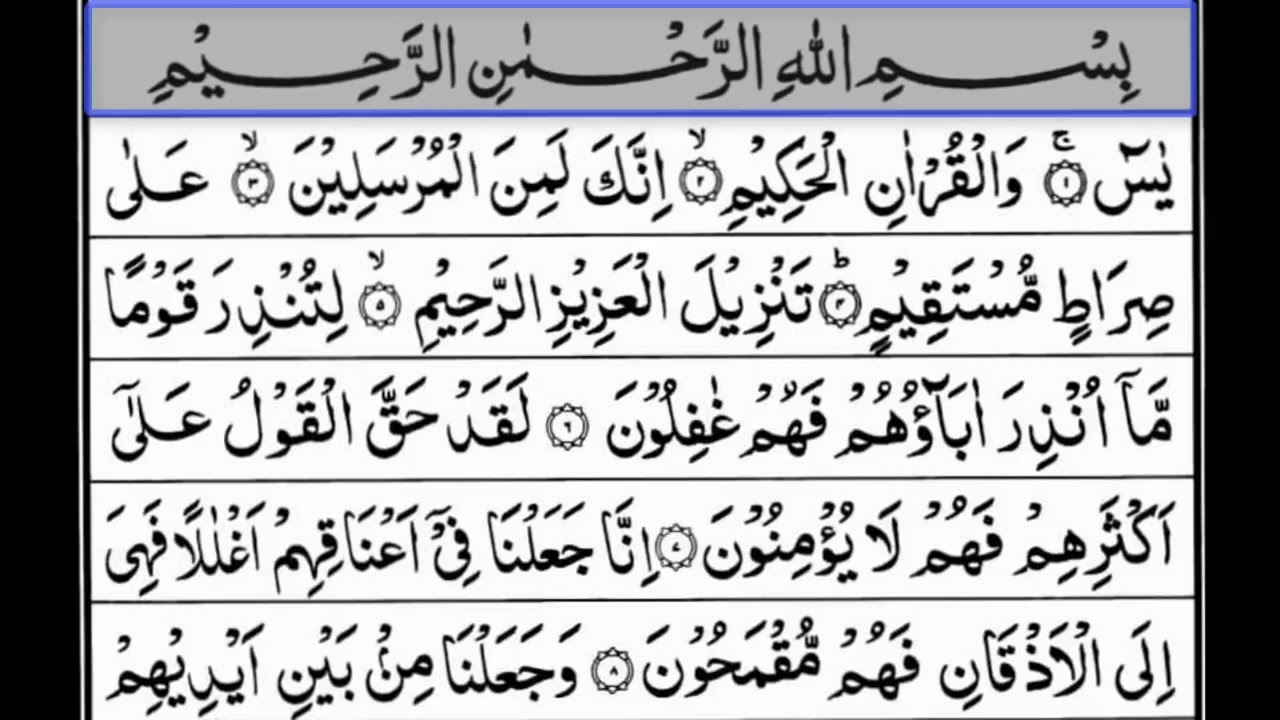 بِسْمِ اللهِ الرَّحْمٰنِ الرَّحِيْمِ
يٰسٓ ۚ‏﴿۱﴾ وَالْقُرْاٰنِ الْحَكِيْمِ ۙ‏﴿۲﴾ اِنَّكَ لَمِنَ الْمُرْسَلِيْنَ ۙ‏﴿۳﴾ عَلٰى
صِرَاطٍ مُّسْتَقِيْمٍ ؕ‏﴿۴﴾ تَنْزِيْلَ الْعَزِيْزِ الرَّحِيْمِ ۙ‏﴿۵﴾ لِتُنْذِرَ قَوْمًا
مَّاۤ اُنْذِرَ اٰبَآؤُهُمْ فَهُمْ غٰفِلُوْنَ ‏﴿۶﴾ لَقَدْ حَقَّ الْقَوْلُ عَلٰٓى
اَكْثَرِهِمْ فَهُمْ لَا يُؤْمِنُوْنَ ‏﴿۷﴾ اِنَّا جَعَلْنَا فِىْۤ اَعْنَاقِهِمْ اَغْلٰلًا فَهِىَ
اِلَى الْاَذْقَانِ فَهُمْ مُّقْمَحُوْنَ ‏﴿۸﴾ وَجَعَلْنَا مِنْۢ بَيْنِ اَيْدِيْهِمْ